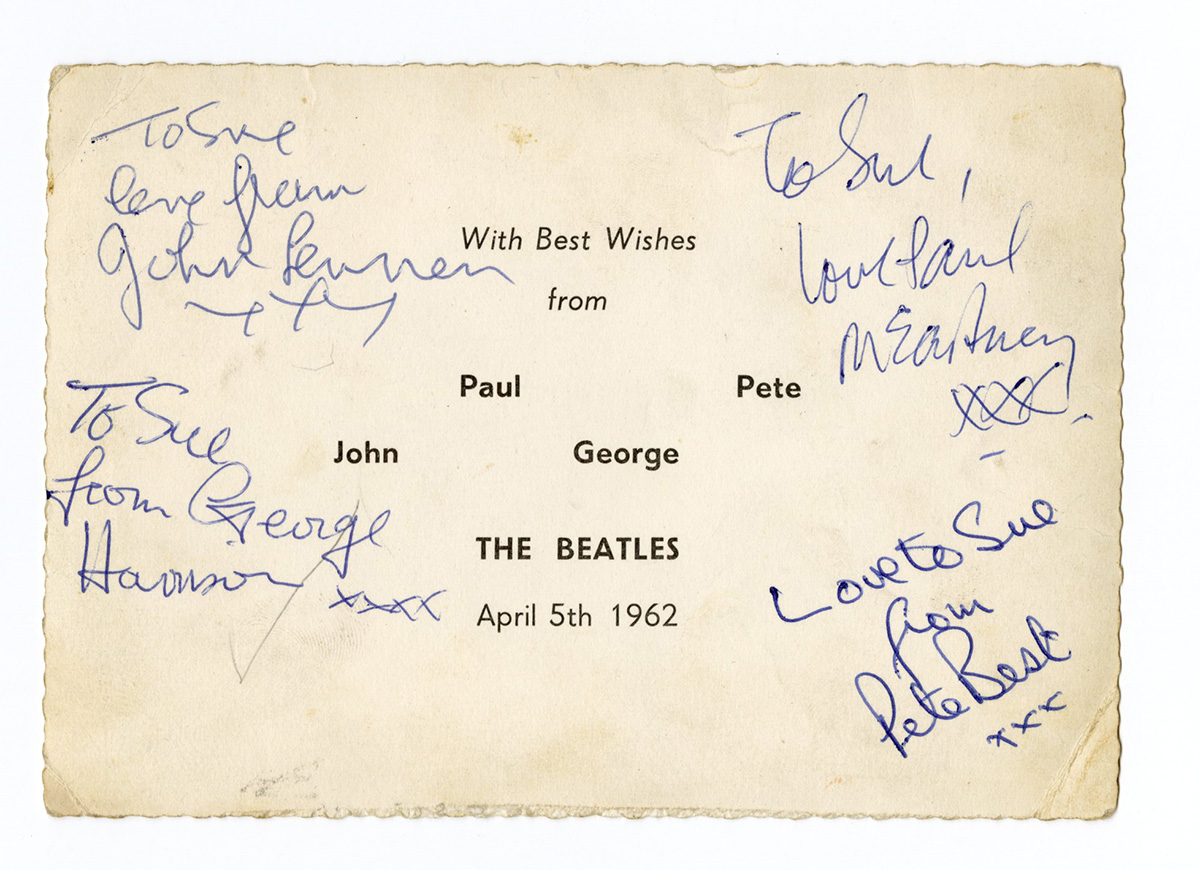 To Sue
love from
John Lennon
xxx
To Sue,
love Paul
McCartney
xxx
With Best Wishes
from
Paul Pete
John George
THE BEATLES
April 5th 1962
To Sue
from George
Harrison
xxxx
Love to Sue
from
Pete Best
xxx